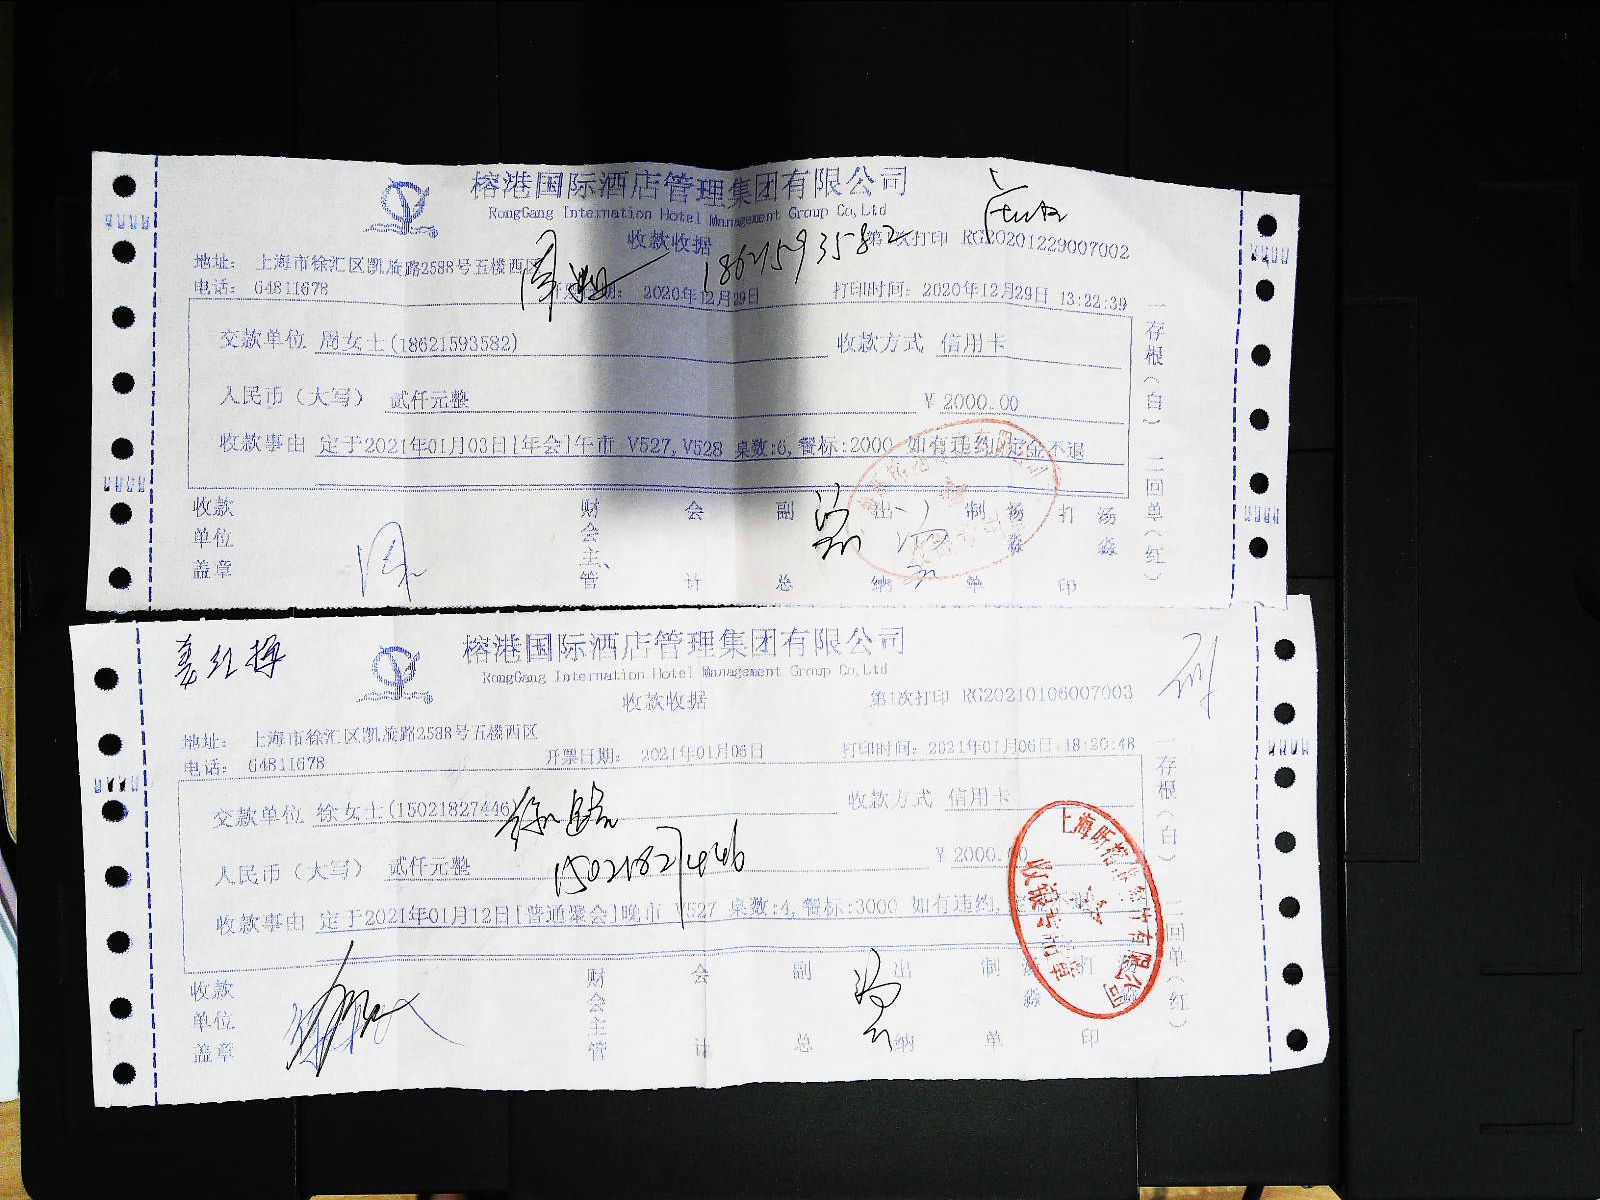 榕港国际酒店管理集团有限公司
RongGang Internation Hotel Management Group Co,Ltd
收款收据
18621593582
第1次打印 RG20201229007002
地址： 上海市徐汇区凯旋路2588号五楼西区
电话： 64811678
2020年12月29日
打印时间： 2020年12月29日 13:22:39
交款单位 周女士(18621593582)
收款方式 信用卡
人民币（大写） 贰仟元整
￥2000.00
收款事由 定于2021年01月03日[年会]午市 V527,V528 桌数:6,餐标:2000 如有违约,定金不退
一存根(白) 二回单(红)
收款单位盖章
财会主管
会计
副总
出纳
制单
汤淼
打印
汤淼
榕港国际酒店管理集团有限公司
RongGang Internation Hotel Management Group Co,Ltd
收款收据
第1次打印 RG20210106007003
地址： 上海市徐汇区凯旋路2588号五楼西区
电话： 64811678
开票日期： 2021年01月06日
打印时间： 2021年01月06日 18:20:48
交款单位 徐女士(15021827446)
收款方式 信用卡
人民币（大写） 贰仟元整
15021827446
￥2000.00
收款事由 定于2021年01月12日[普通聚会]晚市 V527 桌数:4,餐标:3000 如有违约,
一存根(白) 二回单(红)
收款单位盖章
财会主管
会计
副总
出纳
制单
打印